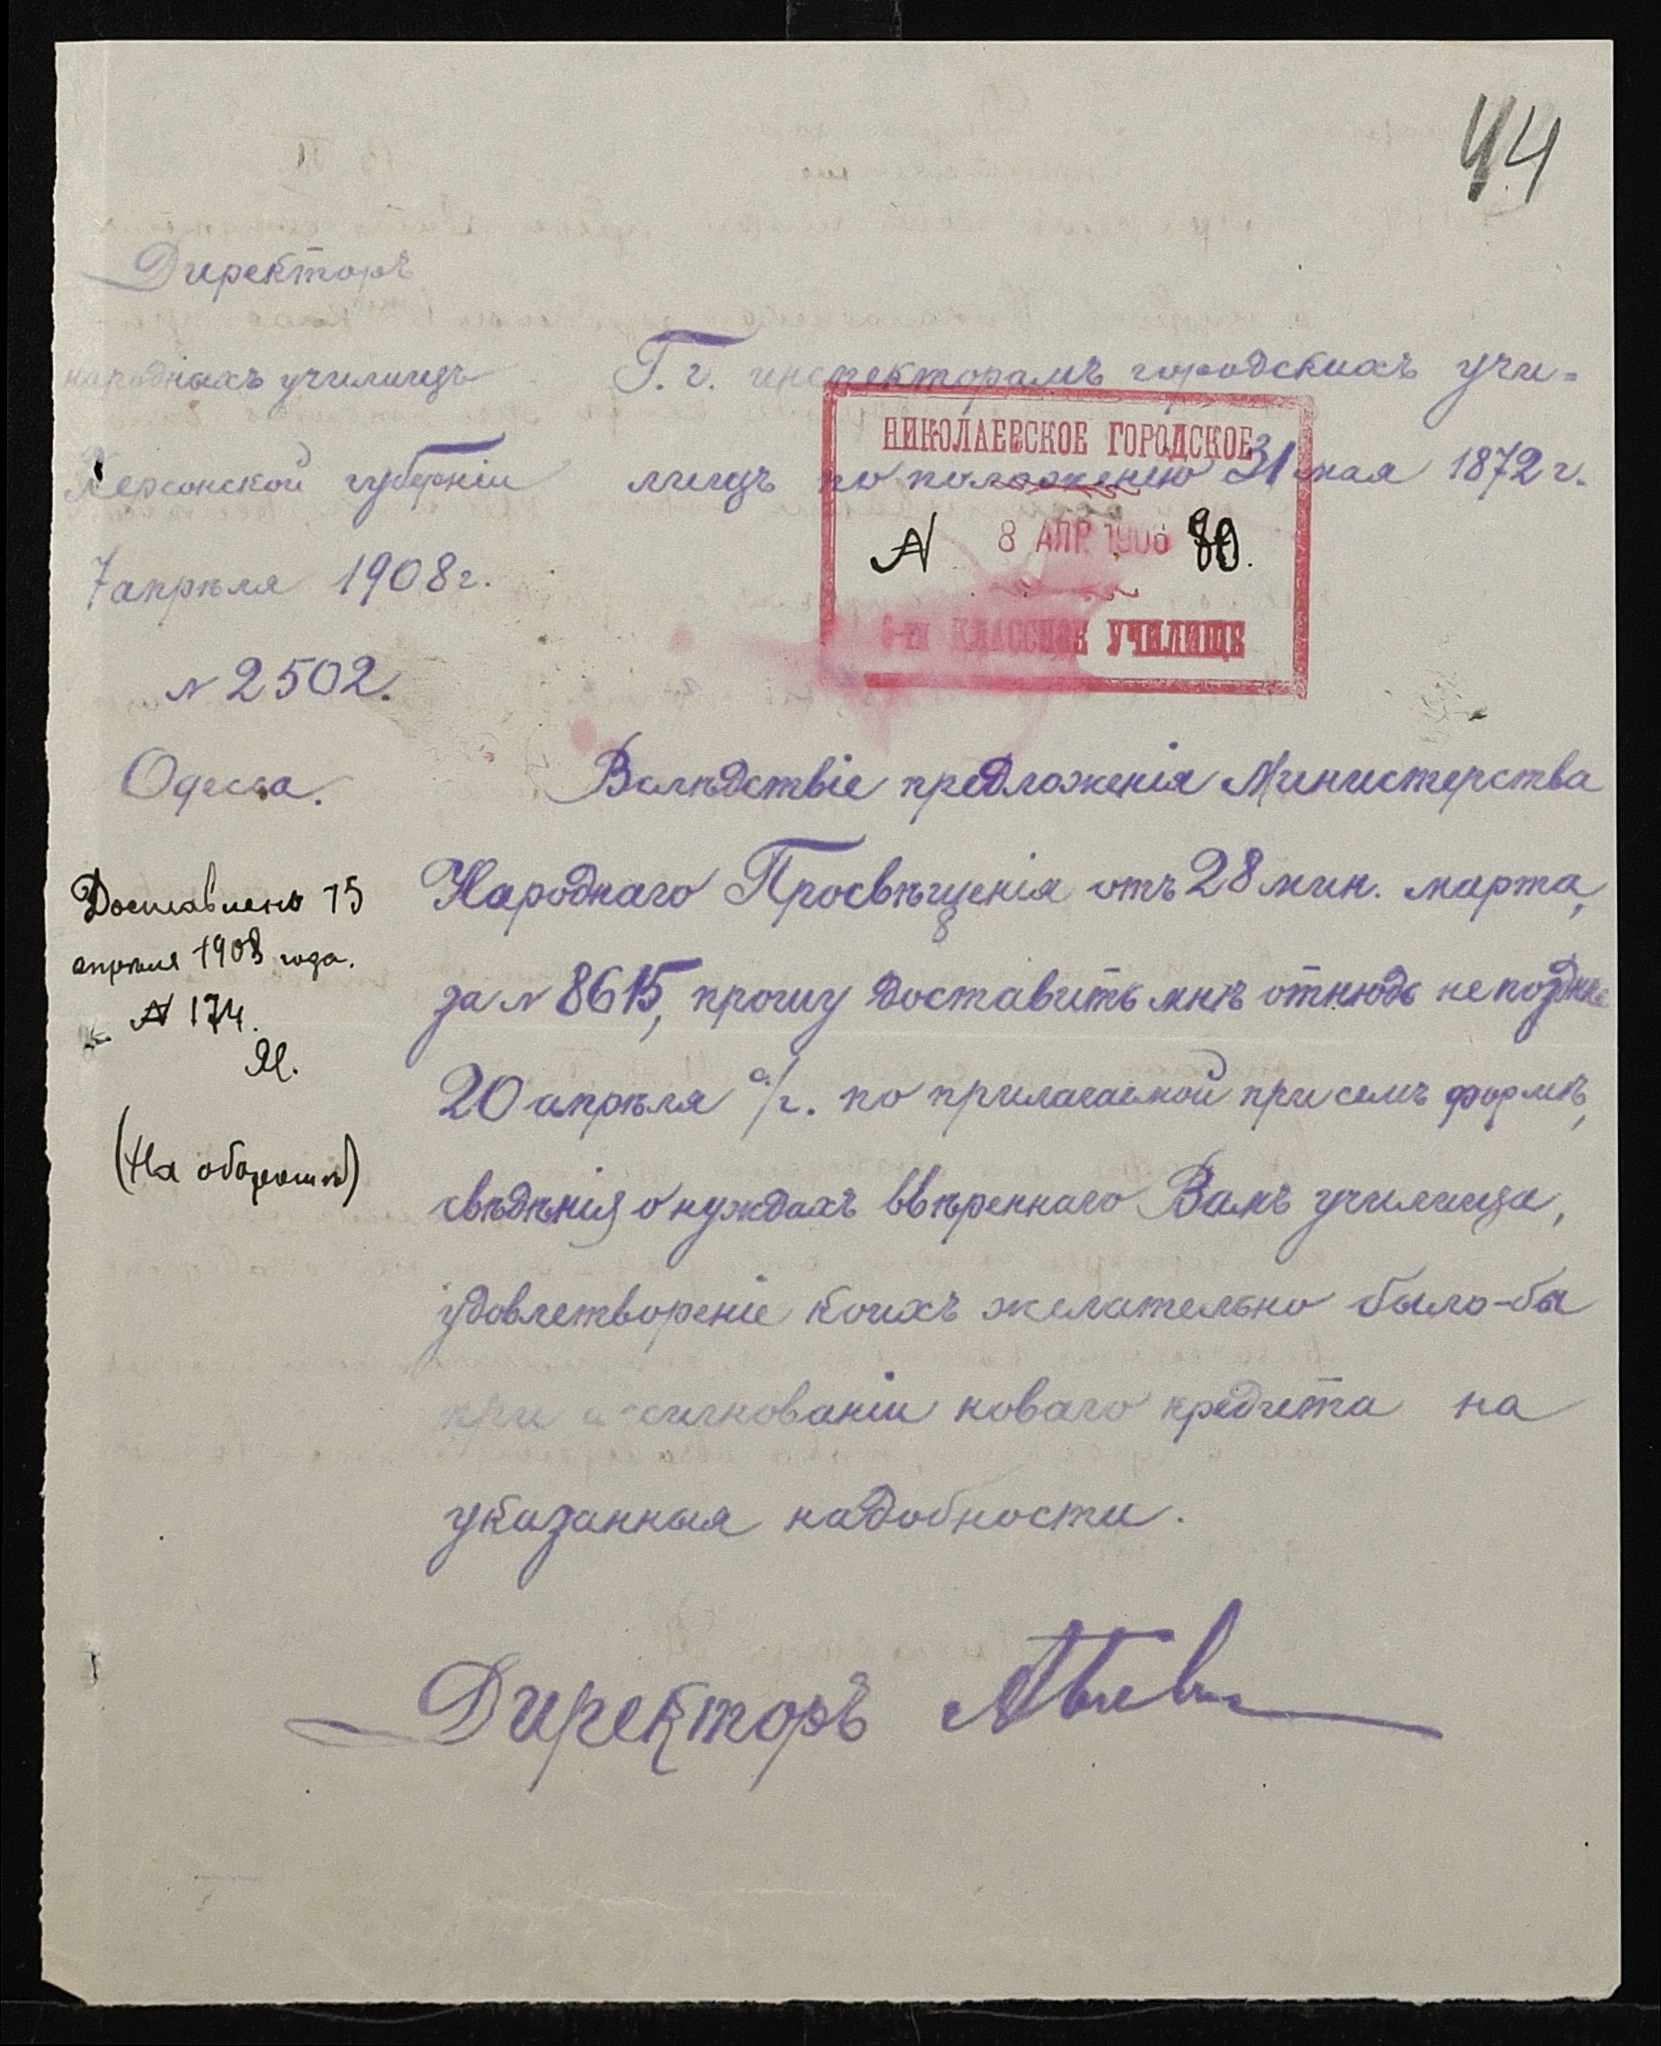 44
Директоръ
народныхъ училищъ
Херсонской губерніи
7 апрѣля 1908 г.
№ 2502.
Одесса.
Г. г. инспекторамъ городскихъ учи=
лищъ по положенію 31 мая 1872 г.
НИКОЛАЕВСКОЕ ГОРОДСКОЕ
№ 8 АПР. 1908
КЛАССНОЕ УЧИЛИЩЕ
Вслѣдствіе предложенія Министерства
Народнаго Просвѣщенія отъ 28 мин. марта,
за № 8615, прошу доставить мнѣ отнюдь не позднѣе
20 апрѣля с/г. по прилагаемой при семъ формѣ,
свѣдѣнія о нуждахъ ввѣреннаго Вамъ училища,
удовлетвореніе коихъ желательно было-бы
при ассигнованіи новаго кредита на
указанныя надобности.
Директоръ
Доставлено 15
апрѣля 1908 года.
№ 174.
(На оборотѣ)